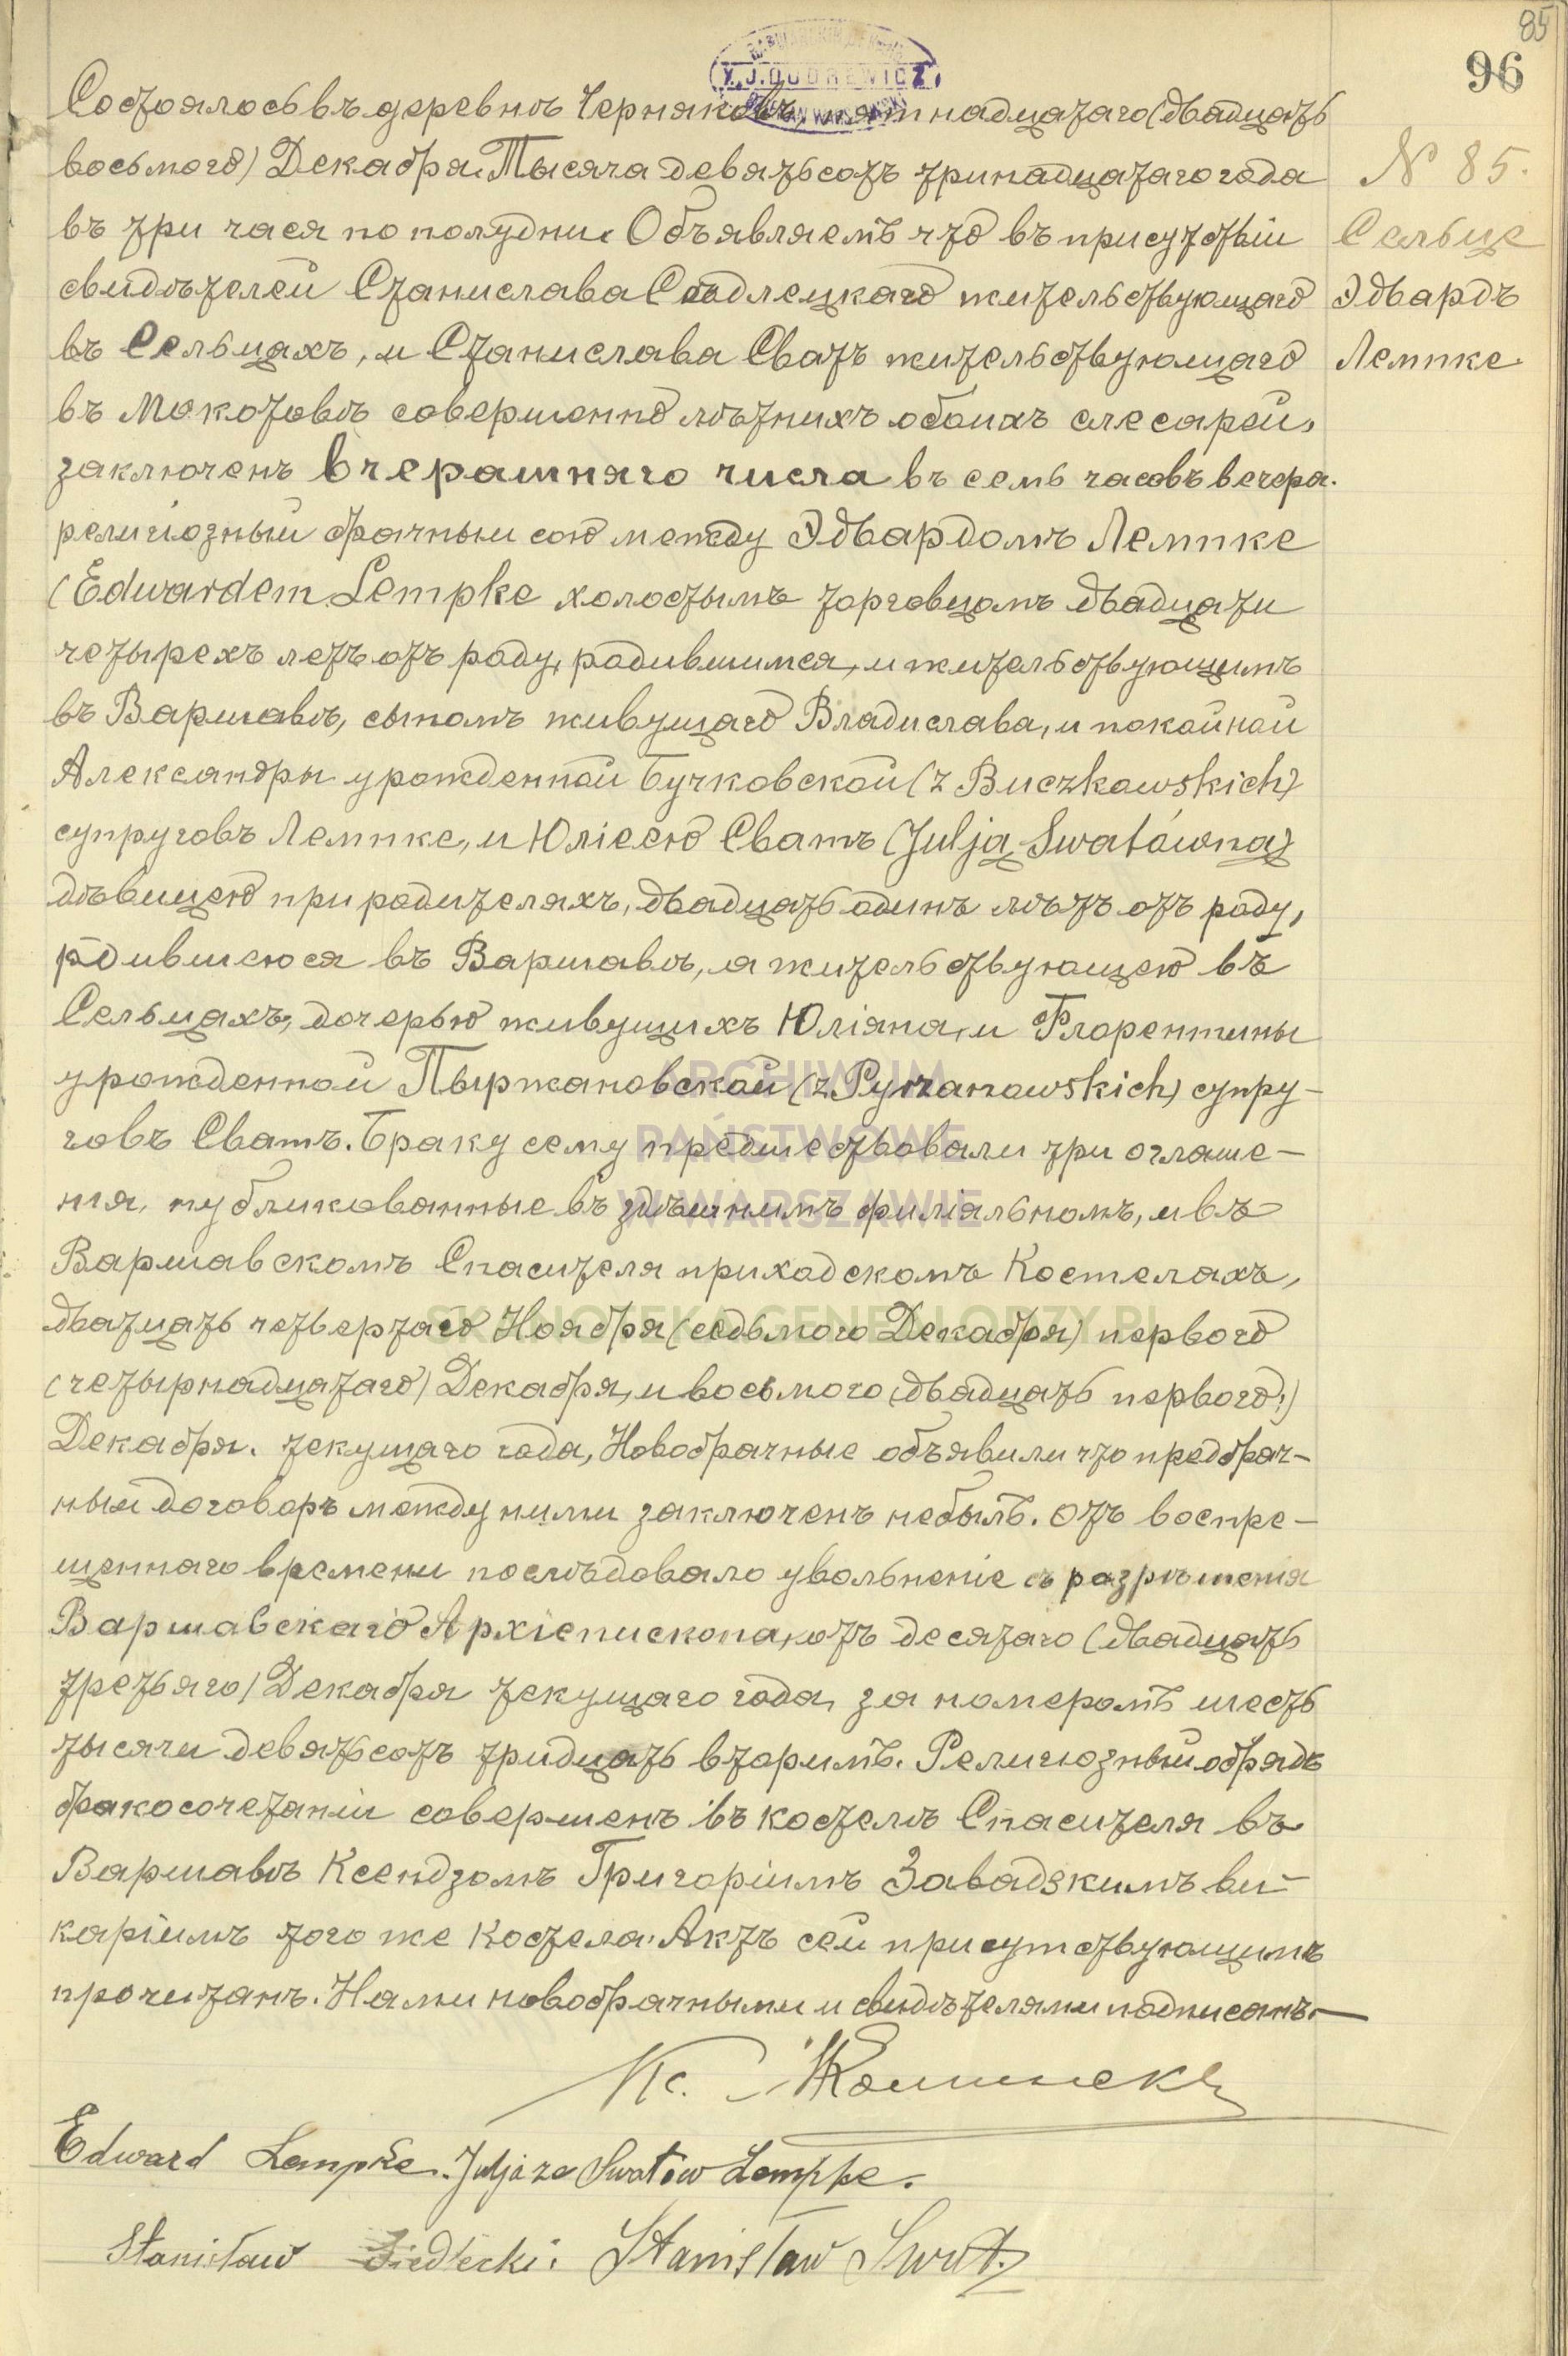 85
96
X. J. DUDREWICZ
Состоялось въ деревнѣ Черняковѣ, пятнадцатаго (двадцать
восьмого) Декабря Тысяча девятьсотъ тринадцатаго года
въ три часа по полудни. Объявляемъ что въ присутствіи
свидѣтелей Станислава Сѣдлецкаго жительствующаго
въ Сельцахъ, и Станислава Сватъ жительствующаго
въ Мокотовѣ совершеннолѣтнихъ обоихъ слесарей,
заключенъ вчерашняго числа въ семь часовъ вечера.
религіозный брачный союз между Эдвардомъ Лемпке
(Edwardem Lempke холостымъ торговцомъ двадцати
четырехъ летъ отъ роду, родившимся, и жительствующимъ
въ Варшавѣ, сыномъ живущаго Владислава, и покойной
Александры урожденной Бучковской (z Buczkowskich)
супруговъ Лемпке, и Юліею Сватъ (Julją Swatówną)
дѣвицею при родителяхъ, двадцать одинъ лѣтъ отъ роду,
родившеюся въ Варшавѣ, а жительствующею въ
Сельцахъ, дочерью живущихъ Юліана, и Флорентины
урожденной Пыржановской (z Pyrzanowskich) супру-
говъ Сватъ. Браку сему предшествовали три оглаше-
нія, публикованные въ здѣшнимъ филіяльномъ, и въ
Варшавскомъ Спасителя приходскомъ Костелахъ,
двадцать четвертаго Ноября (седьмого Декабря) первого
(четырнадцатаго) Декабря, и восьмого (двадцать первого)
Декабря. текущаго года, Новобрачные объявили что предбрач-
ный договоръ между ними заключенъ небылъ. Отъ воспре-
щеннаго времени послѣдовало увольненіе съ разрѣшенія
Варшавскаго Архіепископа, отъ десятаго (двадцать
третьяго) Декабря текущаго года, за номеромъ шесть
тысячи девятьсотъ тридцать вторимъ. Религіозный обрядъ
бракосочетаніи совершенъ въ костелѣ Спасителя въ
Варшавѣ Ксендзомъ Григоріимъ Завадзкимъ ви-
каріимъ того же Костела. Актъ сей присутствующимъ
прочитанъ. Нами новобрачными и свидѣтелями подписанъ.—
Кс.
Edward Lempke. Julja ze Swatów Lempke.
Stanisław Siedlecki. Stanisław Swat.
№ 85.
Сельце
Эдвардъ
Лемпке.
ARCHIWUM
PAŃSTWOWE
W WARSZAWIE
SKANOTEKA.GENEALODZY.PL